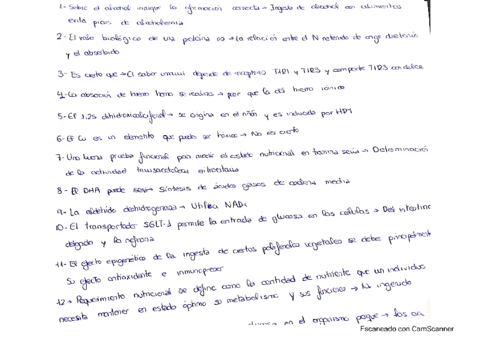 1- Sobre el alcohol marque la información correcta → Ingesta de alcohol con alimentos
evita picos de alcoholemia
2- El valor biológico de una proteína es → La relación entre el N retenido de origen dietario
y el absorbido
3- Es cierto que → El sabor umami depende de receptores T1R1 y T1R3 y comparte T1R3 con dulce
4- La absorción de hierro hemo se realiza → por que la del hierro iónico
5- El 1,25 dihidroxicolecalciferol → se origina en el riñón y es inducido por
6- El Cu es un elemento que puede ser tóxico → No es cierto
7- Una buena prueba funcional para medir el estado nutricional en tiamina seria → Determinación
de la actividad transcetolasa eritrocitaria
8- El DHA puede → Síntesis de ácidos grasos de cadena media
9- La aldehído deshidrogenasa → Utiliza NAD+
10- El transportador SGLT-1 permite la entrada de glucosa en las células → Del intestino
delgado y la nefrona
11- El efecto epigenético de la ingesta de ciertos polifenoles vegetales se debe
Su efecto antioxidante e
12- Requerimiento nutricional se define como la cantidad de nutriente que un individuo
necesita mantener en estado óptimo su metabolismo y sus funciones → N ingerido
en el organismo porque → los
Escaneado con CamScanner